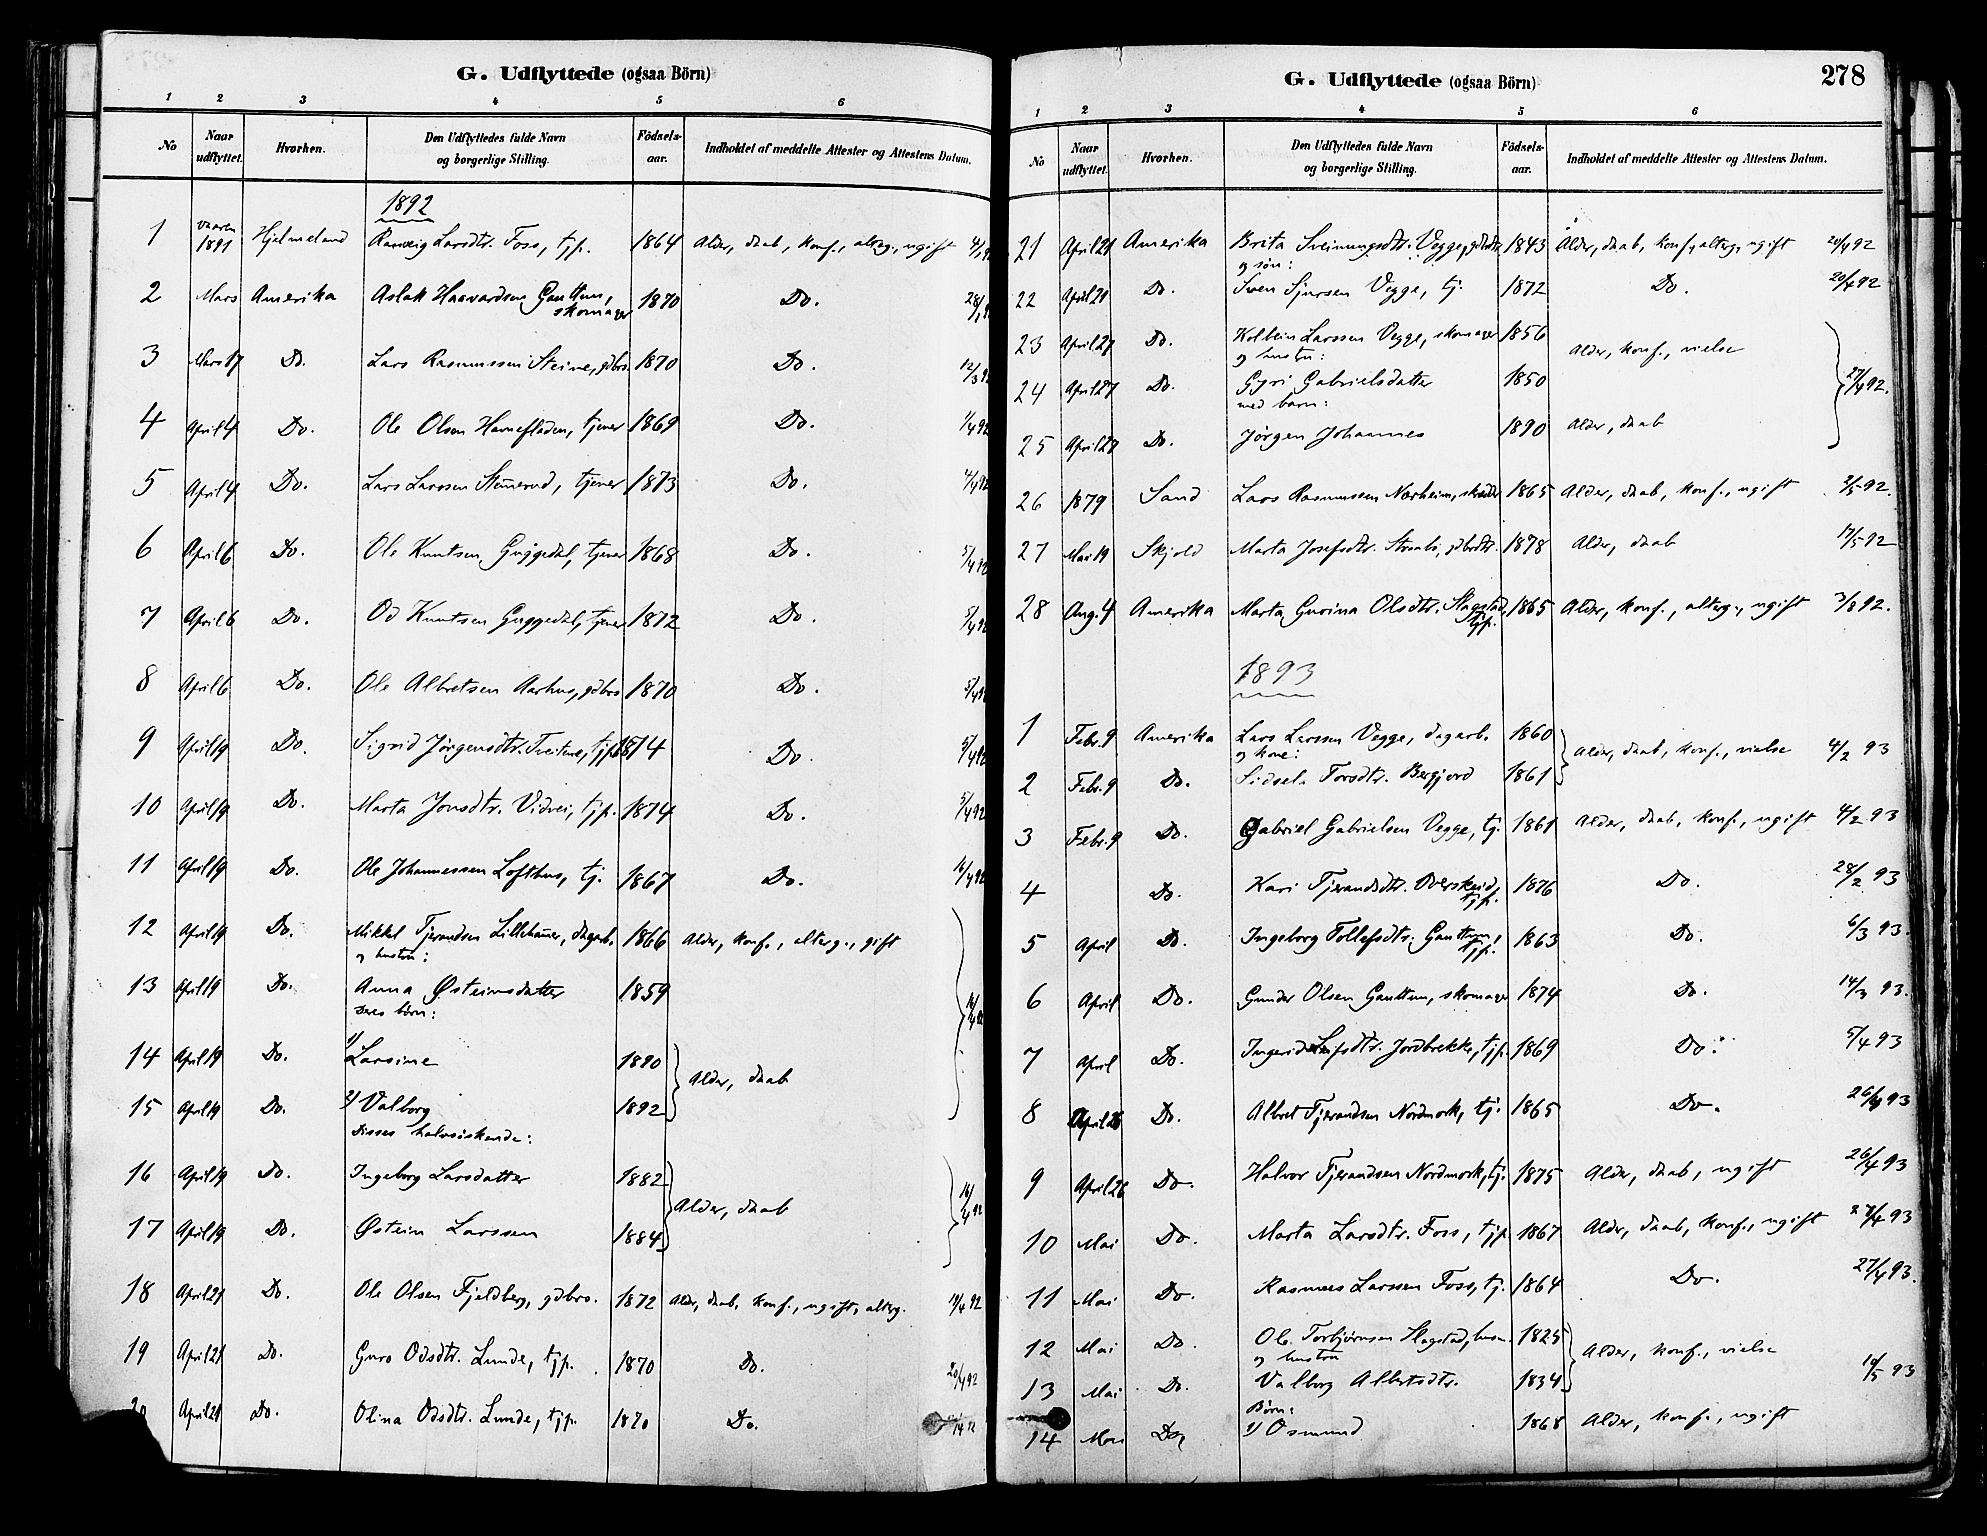 G. Udflyttede (ogsaa Börn)
1 2 3 4 5 6
No Naar udflyttet. Hvorhen. Den Udflyttedes fulde Navn og borgerlige Stilling. Födsels-aar. Indholdet af meddelte Attester og Attestens Datum.
1892
1 vaaren 1891 Hjelmeland Ranveig Larsdtr. Foss, tjp. 1864 Alder, daab, konf., alterg., ugift
2 Mars Amerika Aslak Haavardsen Gauttun, skomager 1870 Do.
3 Mars 17 Do. Lars Rasmussen Steine, gdbrs. 1870 Do. 12/3 92
4 April 4 Do. Ole Olsen Havnefladen, tjener 1869 Do. 1/4 92
5 April 4 Do. Lars Larssen tjener 1873 Do. 4/4 92
6 April 6 Do. Ole Knutsen Guggedal, tjener 1868 Do. 5/4 92
7 April 6 Do. Od Knutsen Guggedal, tjener 1872 Do. 5/4 92
8 April 6 Do. Ole Albretsen Aarhus, gdbrs 1870 Do. 5/4 92
9 April 19 Do. Sigrid Jørgensdtr. Tveitane, tjp. 1874 Do. 5/4 92
10 April 19 Do. Marta Jonsdtr. Vidvei, tjp. 1874 Do. 5/4 92
11 April 19 Do. Ole Johannessen Lofthus, tj. 1867 Do. 16/4 92
12 April 19 Do. Mikkel Tjerandsen Lillehamer, dagarb. 1866 Alder, konf., alterg., gift
og hustru:
13 April 19 Do. Anna Østeinsdatter 1859 16/4 92
deres börn:
14 April 19 Do. 1) Larsine 1890 Alder, daab
15 April 19 Do. 2) Valborg 1892
disses halvsöskende:
16 April 19 Do. Ingeborg Larsdatter 1882 Alder, daab 16/4 92
17 April 19 Do. Østein Larssen 1884
18 April 21 Do. Ole Olsen Fjeldberg, gdbrs. 1872 Alder, daab, konf., ugift, alterg. 19/4 92
19 April 21 Do. Guro Odsdtr. Lunde, tjp. 1870 Do. 20/4 92
20 April 21 Do. Olina Odsdtr. Lunde, tjp. 1870 Do.
G. Udflyttede (ogsaa Börn) 278
1 2 3 4 5 6
No Naar udflyttet. Hvorhen. Den Udflyttedes fulde Navn og borgerlige Stilling. Födsels-aar. Indholdet af meddelte Attester og Attestens Datum.
21 April 21 Amerika Brita Sveinungsdtr. Vegge, 1843 Alder, daab, konf., alterg., ugift 20/4 92
og søn:
22 April 21 Do. Sven Sjursen Vegge, tj. 1872 Do. 20/4 92
23 April 27 Do. Kolbein Larssen Vegge, skomager 1856 Alder, konf., vielse
og hustru:
24 April 27 Do. Gyri Gabrielsdatter 1850 27/4 92.
med barn:
25 April 27 Do. Jørgen Johannes 1890 Alder, daab
26 1879 Sand Lars Rasmussen Nærheim, skredder 1865 Alder, daab, konf., ugift 2/5 92.
27 Mai 19 Skjold Marta Josefsdtr. gdbrdtr. 1878 Alder, daab 17/5 92
28 Aug. 4 Amerika Marta Gurina Olsdtr. Slagstad, tjp. 1865 Alder, konf., alterg., ugift 3/8 92.
1893
1 Febr. 9 Amerika Lars Larssen Vegge, dagarb. 1860 Alder, daab, konf., vielse 4/2 93
og kone:
2 Febr. 9 Do. Sidsel Torsdtr. Bergjord 1861
3 Febr. 9 Do. Gabriel Gabrielsen Vegge, tj. 1861 Alder, daab, konf., ugift 4/2 93
4 Do. Kari Tjerandsdtr. Overskeid, tjp. 1876 Do. 28/2 93
5 April Do. Ingeborg Tollefsdtr. Gauttun, tjp. 1863 Do. 6/3 93.
6 April Do. Gunder Olsen Gauttun, skomager 1874 Do. 14/3 93.
7 April Do. Ingerid Leifsdtr. Jordbrekke, tjp. 1869 Do. 5/4 93
8 April 26 Do. Albret Tjerandsen Nordmork, tj. 1865 Do. 26/4 93
9 April 26 Do. Halvor Tjerandsen Nordmork, tj. 1875 Alder, daab, ugift 26/4 93
10 Mai Do. Marta Larsdtr. Foss, tjp 1867 Alder, daab, konf., ugift 27/4 93
11 Mai Do. Rasmus Larssen Foss, tj. 1864 Do. 27/4 93.
12 Mai Do. Ole Torbjørnsen Slagstad, husm. 1825 Alder, konf., vielse
og hustru
13 Mai Do. Valborg Albertsdtr. 1834 10/5 93
Børn:
14 Mai Do. 1) Osmund 1868 Alder, konf., ugift